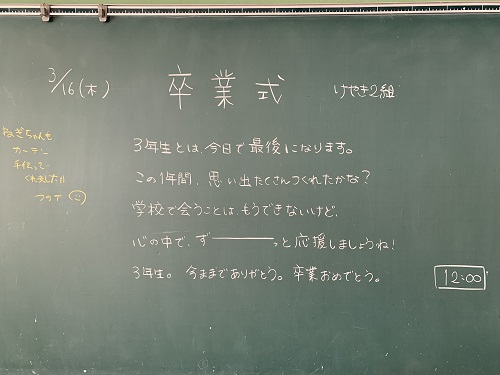 3/16(木) 卒業式 けやき2組
3年生とは、今日で最後になります。
この1年間、思い出たくさんつくれたかな？
学校で会うことは、もうできないけど、
心の中で、ず――――っと応援しましょうね！
3年生。今まであ りがとう。卒業おめでとう。
12:00
ねぎちゃんも
カーテン
手伝って
くれました!!